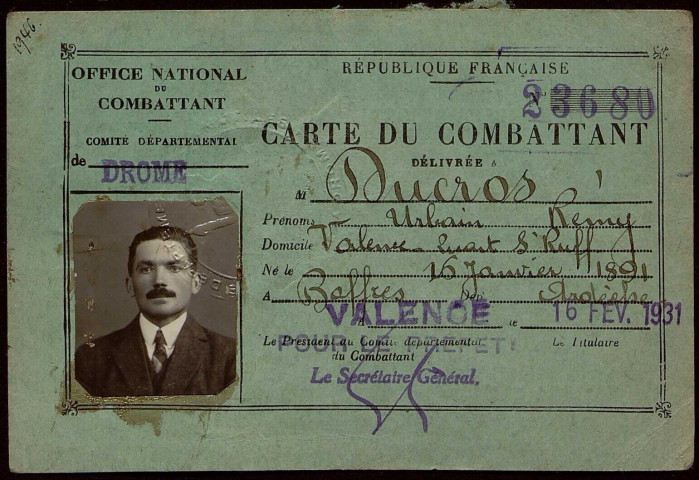 1946.
OFFICE NATIONAL
DU
COMBATTANT
COMITÉ DÉPARTEMENTAL
de DROME
RÉPUBLIQUE FRANÇAISE
N° 23680
CARTE DU COMBATTANT
DÉLIVRÉE à
M Ducros
Prénoms Urbain Remy
Domicile Valence Quart St Ruff
Né le 16 Janvier 1891
A Boffres Dép Ardèche
A VALENCE le 16 FEV. 1931
Le Président du Comité départemental
du Combattant
Le Titulaire
POUR LE PREFET:
Le Secrétaire Général,